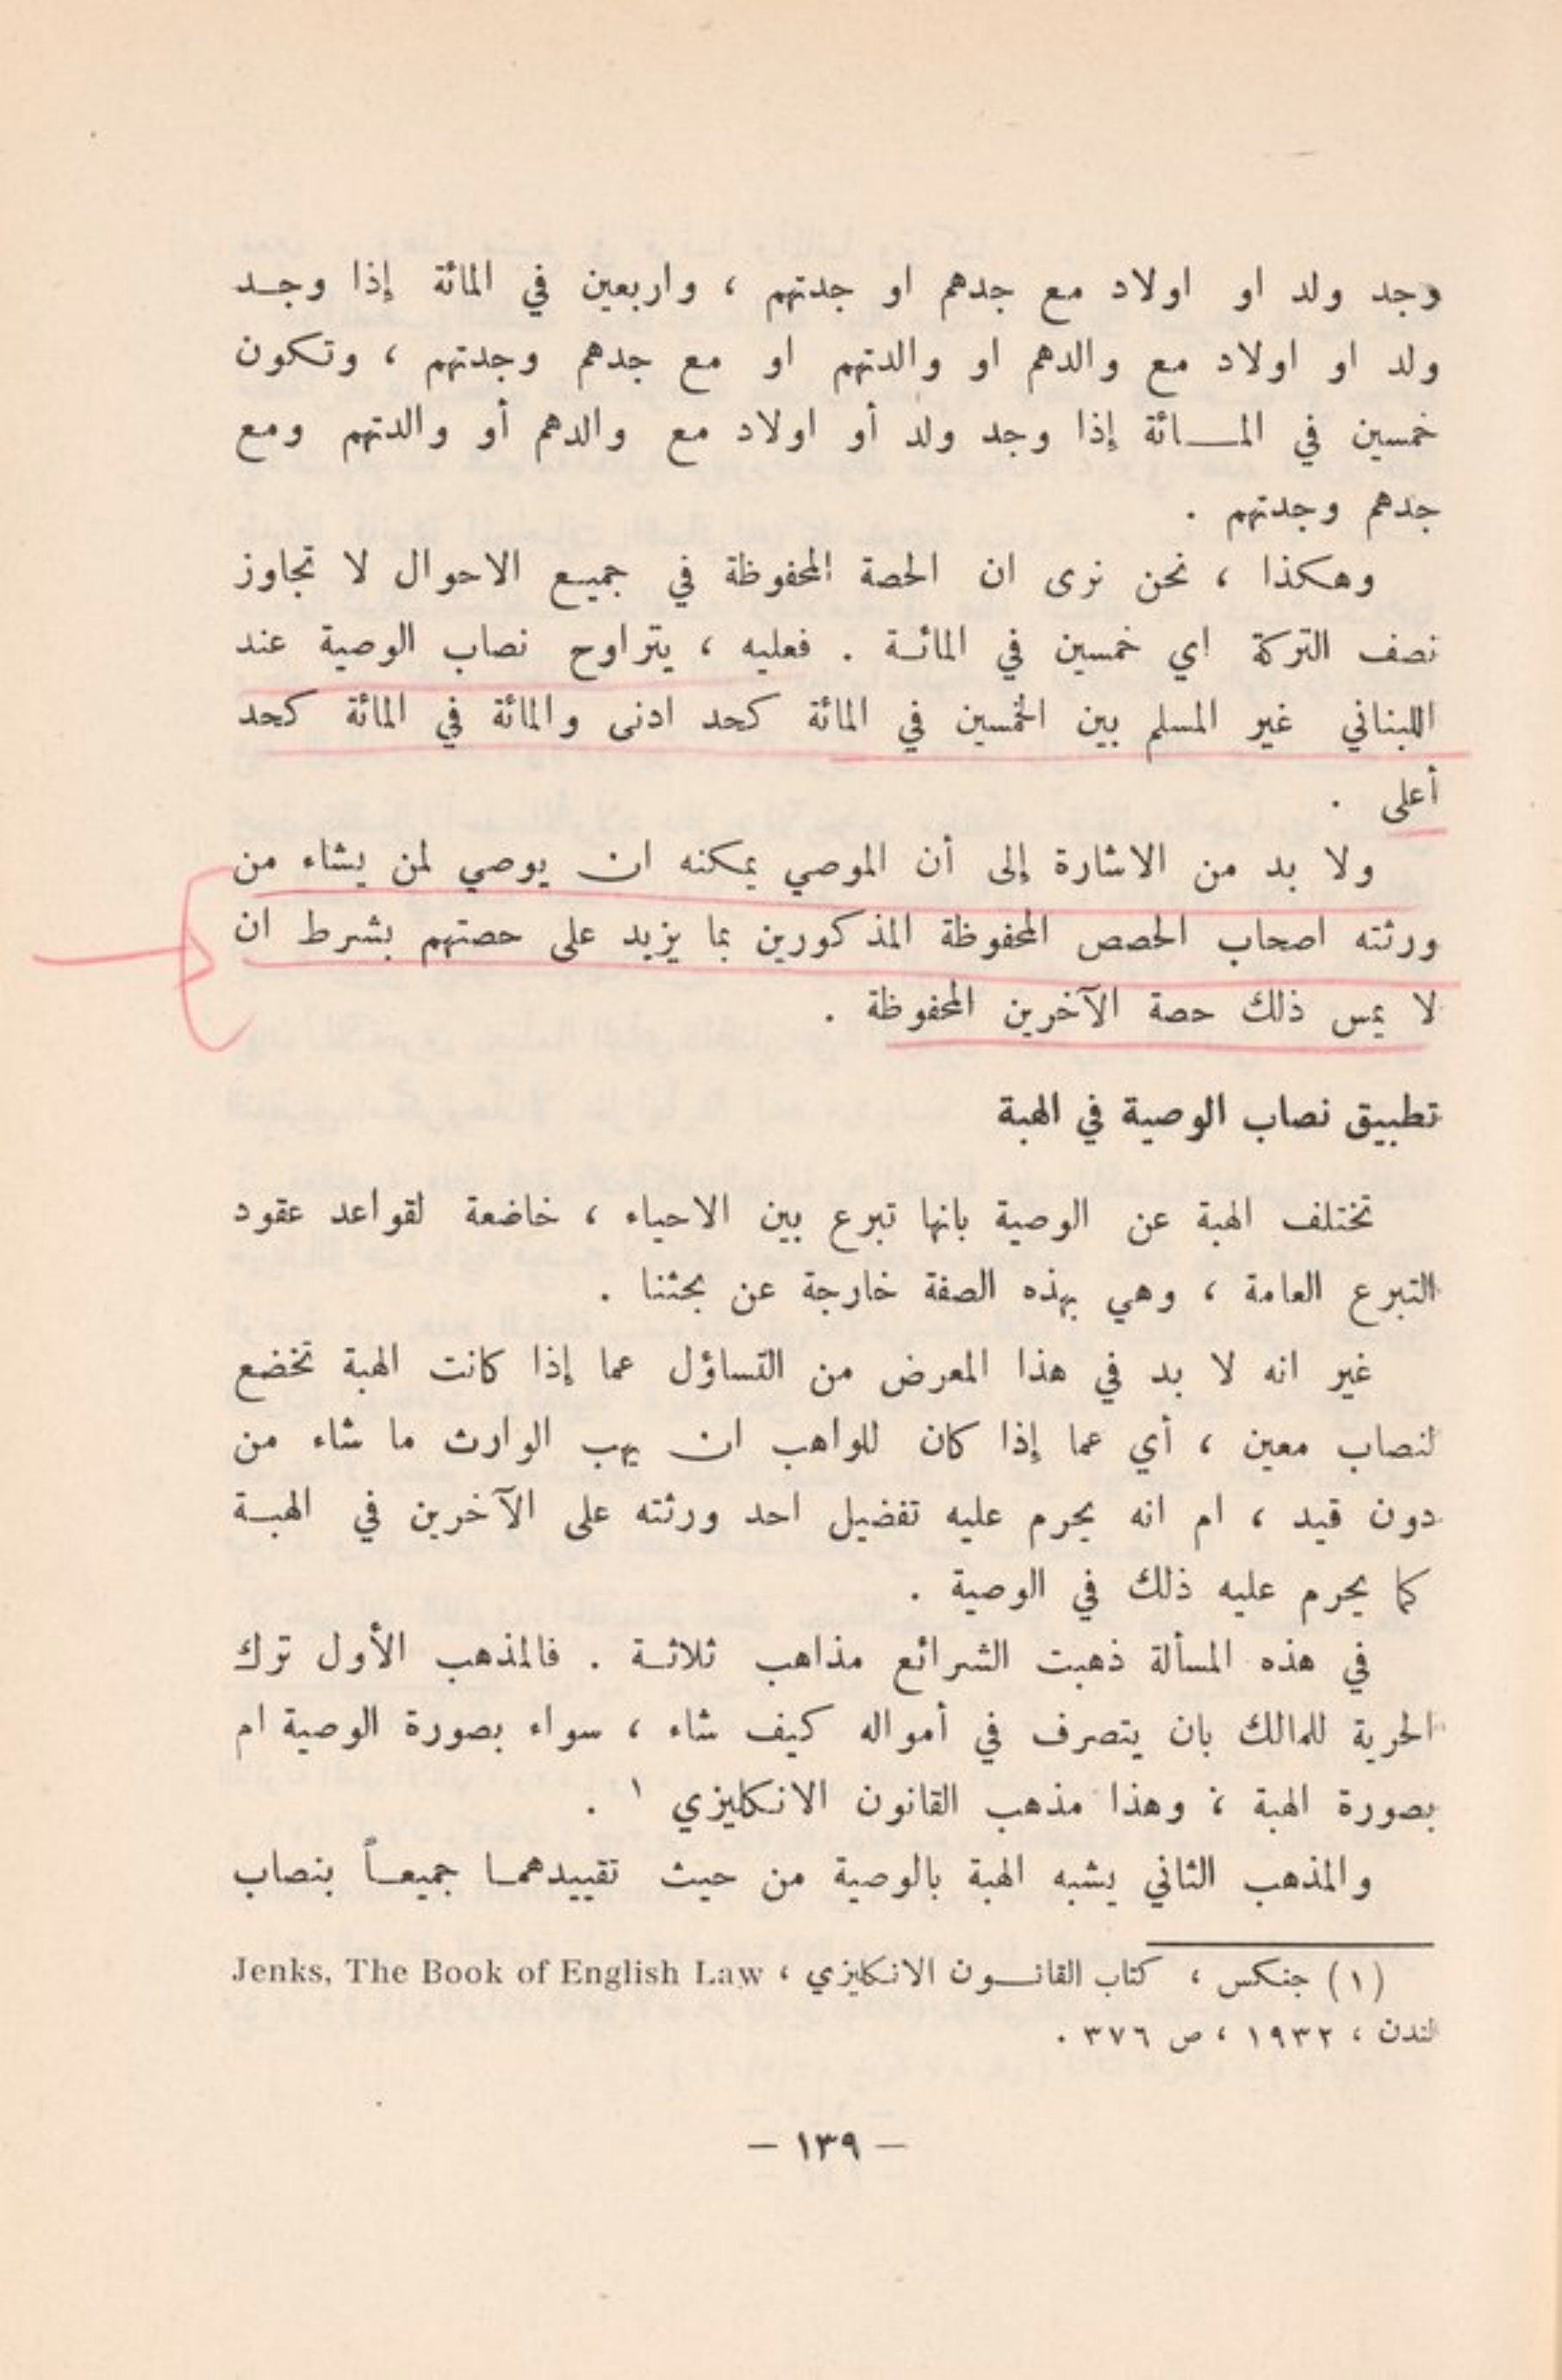 وجد ولد او اولاد مع جدهم او جدتهم ، واربعين في المائة إذا وجد
ولد او اولاد مع والدهم او والدتهم او مع جدهم وجدتهم ، وتكون
خمسين في المائة إذا وجد ولد أو اولاد مع والدهم أو والدتهم ومع
جدهم وجدتهم .
وهكذا ، نحن نرى ان الحصة المحفوظة في جميع الاحوال لا تجاوز
نصف التركة اي خمسين في المائة . فعليه ، يتراوح نصاب الوصية عند
اللبناني غير المسلم بين الخمسين في المائة كحد ادنى والمائة في المائة كحد
أعلى .
ولا بد من الاشارة إلى أن الموصي يمكنه ان يوصي لمن يشاء من
ورثته اصحاب الحصص المحفوظة المذكورين بما يزيد على حصتهم بشرط ان
لا يمس ذلك حصة الآخرين المحفوظة .
تطبيق نصاب الوصية في الهبة
تختلف الهبة عن الوصية بانها تبرع بين الاحياء ، خاضعة لقواعد عقود
التبرع العامة ، وهي بهذه الصفة خارجة عن بحثنا .
غير انه لا بد في هذا المعرض من التساؤل عما إذا كانت الهبة تخضع
لنصاب معين ، أي عما إذا كان للواهب ان يهب الوارث ما شاء من
دون قيد ، ام انه يحرم عليه تفضيل احد ورثته على الآخرين في الهبة
كما يحرم عليه ذلك في الوصية .
في هذه المسألة ذهبت الشرائع مذاهب ثلاثة . فالمذهب الأول ترك
الحرية للمالك بان يتصرف في أمواله كيف شاء ، سواء بصورة الوصية ام
بصورة الهبة ، وهذا مذهب القانون الانكليزي ١ .
والمذهب الثاني يشبه الهبة بالوصية من حيث تقييدهما جميعاً بنصاب
(١) جنكس ، كتاب القانون الانكليزي ، Jenks, The Book of English Law
لندن ، ١٩٣٢ ، ص ٣٧٦ .
— ١٣٩ —